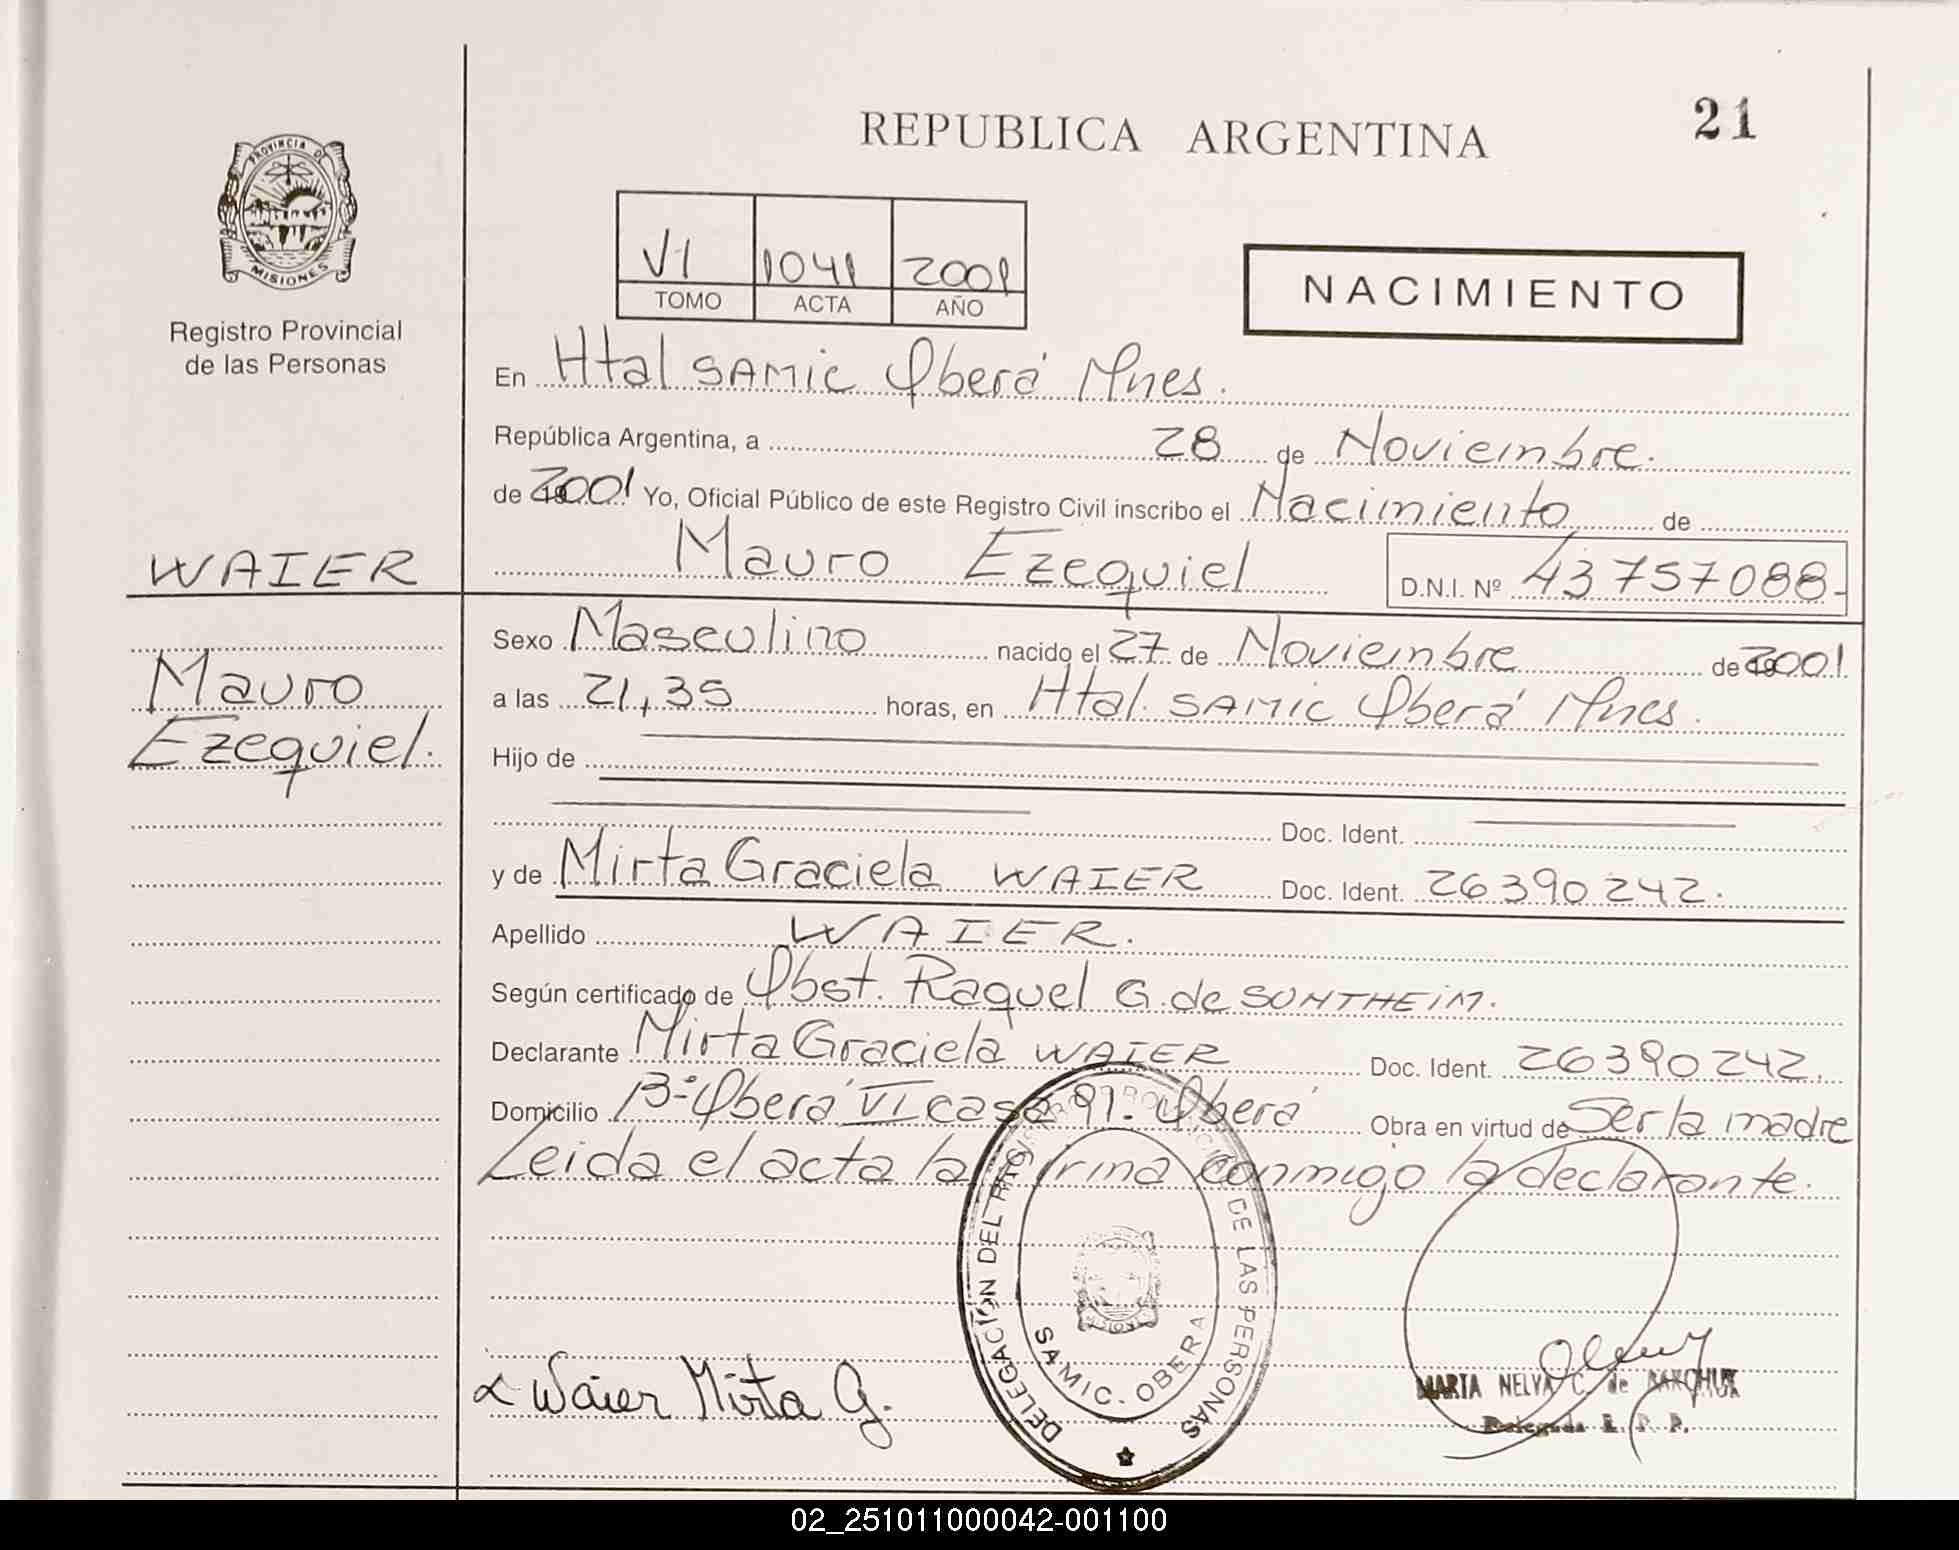 REPUBLICA ARGENTINA
21
PROVINCIA DE
MISIONES
Registro Provincial
de las Personas
VI 1041 2001
TOMO ACTA AÑO
NACIMIENTO
En Htal SAMIC Oberá Mnes.
República Argentina, a 28 de Noviembre.
de 2001 Yo, Oficial Público de este Registro Civil inscribo el Nacimiento de
Mauro Ezequiel D.N.I. Nº 43757088-
WAIER
Mauro
Ezequiel.
Sexo Masculino nacido el 27 de Noviembre de 2001
a las 21,35 horas, en Htal. SAMIC Oberá Mnes.
Hijo de
Doc. Ident.
y de Mirta Graciela WAIER Doc. Ident. 26390242.
Apellido WAIER.
Según certificado de Obst. Raquel G. de SONTHEIM.
Declarante Mirta Graciela WAIER Doc. Ident. 26390242.
Domicilio Bº Oberá VI casa 91. Oberá Obra en virtud de Ser la madre
Leida el acta la firma conmigo la declarante.
DELEGACIÓN DEL REGISTRO PROVINCIAL DE LAS PERSONAS
MISIONES
SAMIC. OBERA
Waier Mirta G.
MARTA NELVA C. de
Delegada R. P. P.
02_251011000042-001100